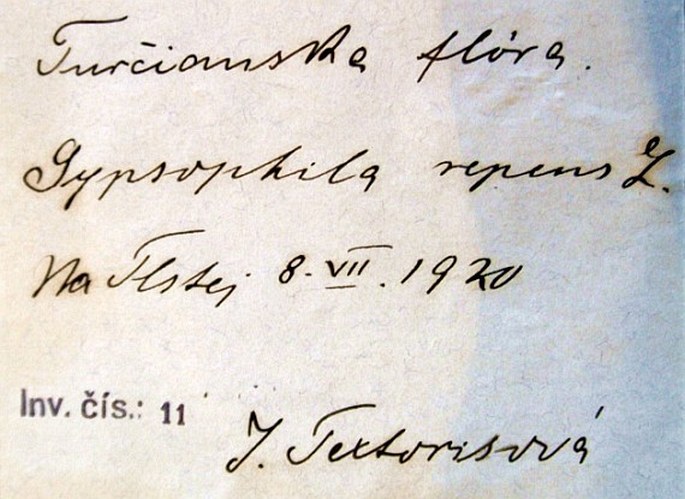 Turčianska flóra.
Gypsophila repens L.
Na Tlstej 8. VII. 1920
Inv. čís.: 11
J. Textorisová